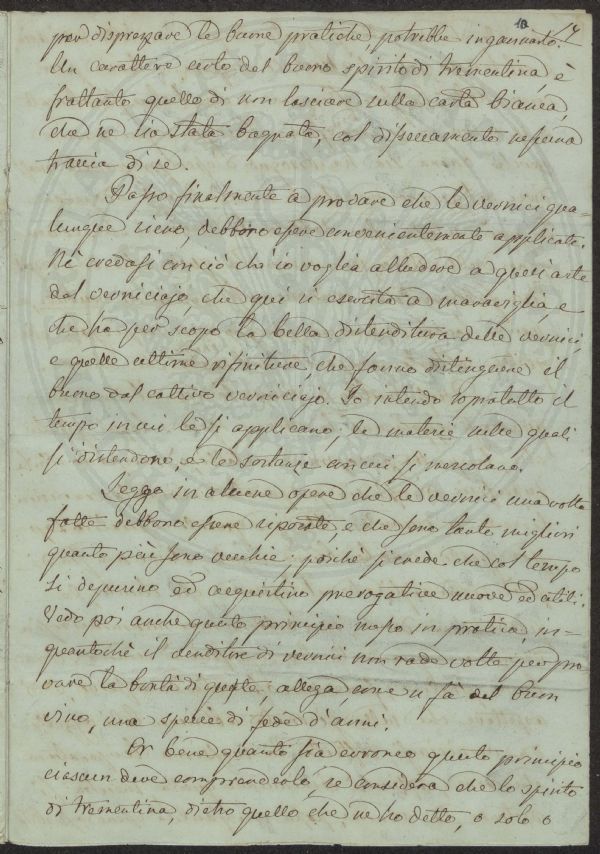 10 17
per disprezzare le buone pratiche potrebbe ingannarlo.
Un carattere certo del buono spirito di trementina, è
frattanto quello di non lasciare sulla carta bianca,
che ne sia stata bagnata, col disseccamento nessuna
traccia di se.
Passo finalmente a provare che le vernici qua-
lunque sieno, debbono essere convenientemente applicate.
Nè credasi con ciò ch'io voglia alludere a quest'arte
del verniciajo, che qui si esercita a maraviglia e
che ha per scopo la bella distenditura delle vernici,
e quelle ultime rifiniture che fanno distinguere il
buono dal cattivo verniciajo. Io intendo sopratutto il
tempo in cui le si applicano, le materie sulle quali
si distendono, e le sostanze con cui si mescolano.
Leggo in alcune opere che le vernici una volta
fatte debbono essere riposate e che sono tanto migliori
quanto più sono vecchie; perchè si crede che col tempo
si depurino ed acquistino prerogative nuove ed utili.
Vedo poi anche questo principio messo in pratica, in-
quantochè il venditore di vernici non rade volte per pro-
vare la bontà di queste, allega, come si fà del buon
vino, una specie di fede d'anni.
Or bene quanto sia erroneo questo principio
ciascun deve comprenderlo, se considera che lo spirito
di trementina, dietro quello che ne ho detto, o solo o